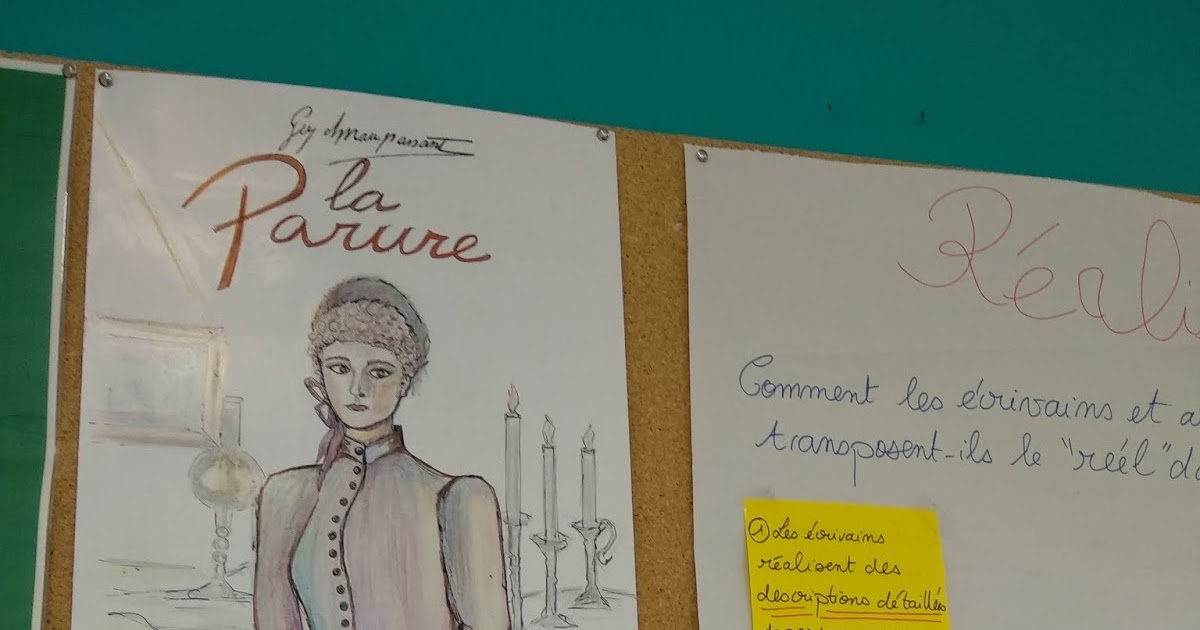 Guy de Maupassant
la
Parure
Réalis
Comment les écrivains et a
transposent-ils le "réel" da
① Les écrivains
réalisent des
descriptions détaillées